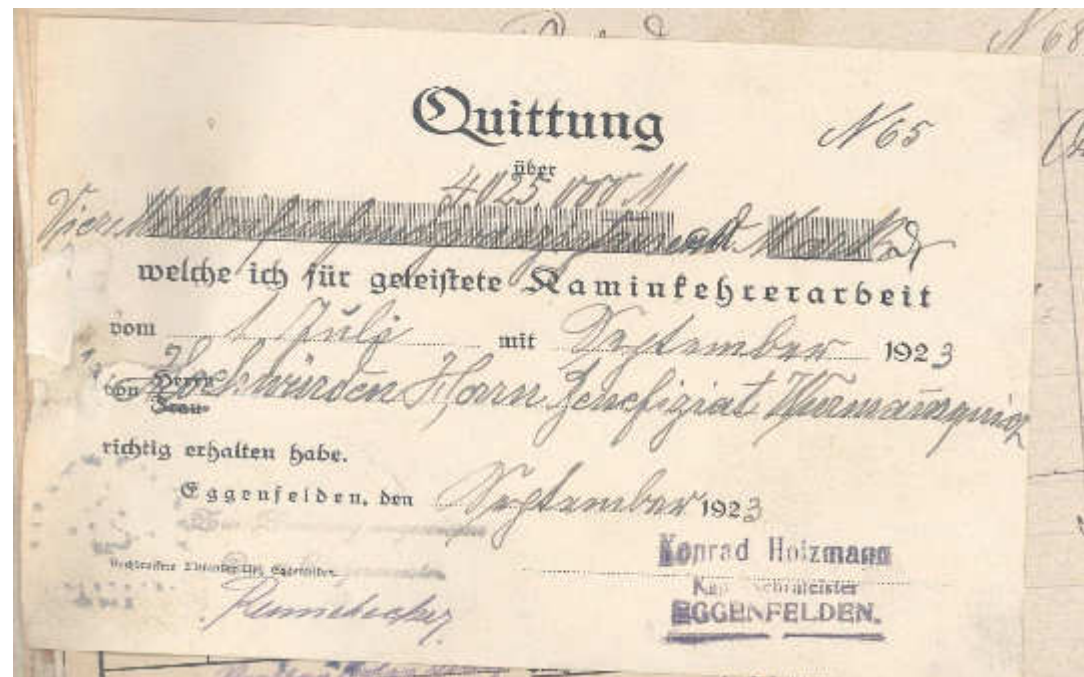 N 68
Quittung
N 65
über
4.025.000 M
Vier Millionfünfundzwanzigtausend Mark
welche ich für geleistete Kaminkehrerarbeit
vom 1 Juli mit September 1923
von Herrn Frau Hochwürden Herrn Benefiziat Wurmannsquick
richtig erhalten habe.
Eggenfelden, den September 1923
Konrad Holzmann
EGGENFELDEN.